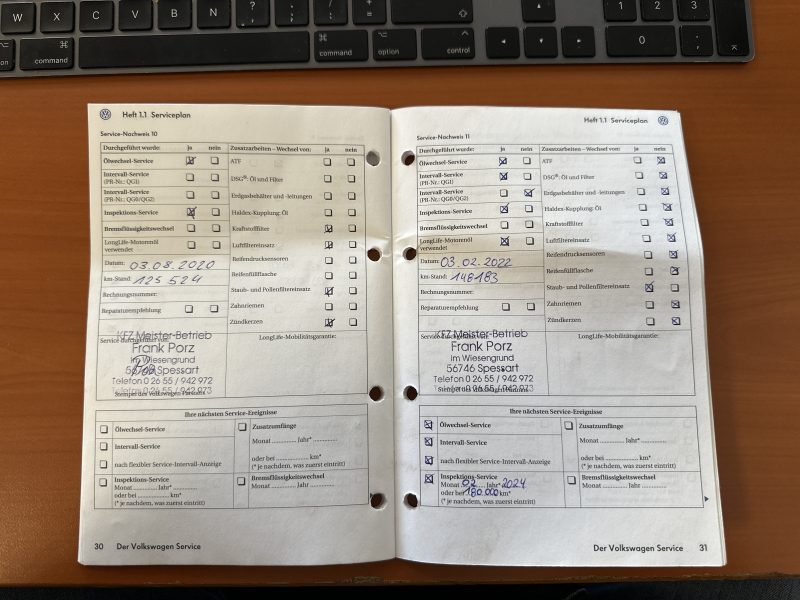 W
X
C
V
B
N
?
command
option
command
option
control
1
2
3
0
Heft 1.1 Serviceplan
Service-Nachweis 10
Durchgeführt wurde: Ja nein
Zusatzarbeiten – Wechsel von: Ja nein
Ölwechsel-Service
ATF
Intervall-Service
(PR-Nr.: QG1)
DSG®: Öl und Filter
Intervall-Service
(PR-Nr.: QG0/QG2)
Erdgasbehälter und -leitungen
Inspektions-Service
Haldex-Kupplung: Öl
Bremsflüssigkeitswechsel
Kraftstofffilter
LongLife-Motorenöl
verwendet
Luftfiltereinsatz
Datum: 03.08.2020
Reifendrucksensoren
km-Stand: 125 524
Reifenfüllflasche
Rechnungsnummer:
Staub- und Pollenfiltereinsatz
Reparaturempfehlung
Zahnriemen
Zündkerzen
Service durchgeführt von:
LongLife-Mobilitätsgarantie:
KFZ Meister-Betrieb
Frank Porz
Im Wiesengrund
56746 Spessart
Telefon 0 26 55 / 942 972
Telefax 0 26 55 / 942 973
Stempel des Volkswagen Partners
Ihre nächsten Service-Ereignisse
Ölwechsel-Service
Zusatzumfänge
Monat ............ Jahr* ............
Intervall-Service
nach flexibler Service-Intervall-Anzeige
oder bei ............ km*
(* je nachdem, was zuerst eintritt)
Inspektions-Service
Monat ............ Jahr* ............
oder bei ............ km*
(* je nachdem, was zuerst eintritt)
Bremsflüssigkeitswechsel
Monat ............ Jahr ............
30 Der Volkswagen Service
Heft 1.1 Serviceplan
Service-Nachweis 11
Durchgeführt wurde: Ja nein
Zusatzarbeiten – Wechsel von: Ja nein
Ölwechsel-Service
ATF
Intervall-Service
(PR-Nr.: QG1)
DSG®: Öl und Filter
Intervall-Service
(PR-Nr.: QG0/QG2)
Erdgasbehälter und -leitungen
Inspektions-Service
Haldex-Kupplung: Öl
Bremsflüssigkeitswechsel
Kraftstofffilter
LongLife-Motorenöl
verwendet
Luftfiltereinsatz
Datum: 03.02.2022
Reifendrucksensoren
km-Stand: 148183
Reifenfüllflasche
Rechnungsnummer:
Staub- und Pollenfiltereinsatz
Reparaturempfehlung
Zahnriemen
Zündkerzen
LongLife-Mobilitätsgarantie:
KFZ Meister-Betrieb
Frank Porz
Im Wiesengrund
56746 Spessart
Telefon 0 26 55 / 942 972
Telefax 0 26 55 / 942 973
Ihre nächsten Service-Ereignisse
Ölwechsel-Service
Zusatzumfänge
Monat ............ Jahr* ............
Intervall-Service
nach flexibler Service-Intervall-Anzeige
oder bei ............ km*
(* je nachdem, was zuerst eintritt)
Inspektions-Service
Monat 02 Jahr* 2024
oder bei 180.000 km*
(* je nachdem, was zuerst eintritt)
Bremsflüssigkeitswechsel
Monat ............ Jahr ............
Der Volkswagen Service 31